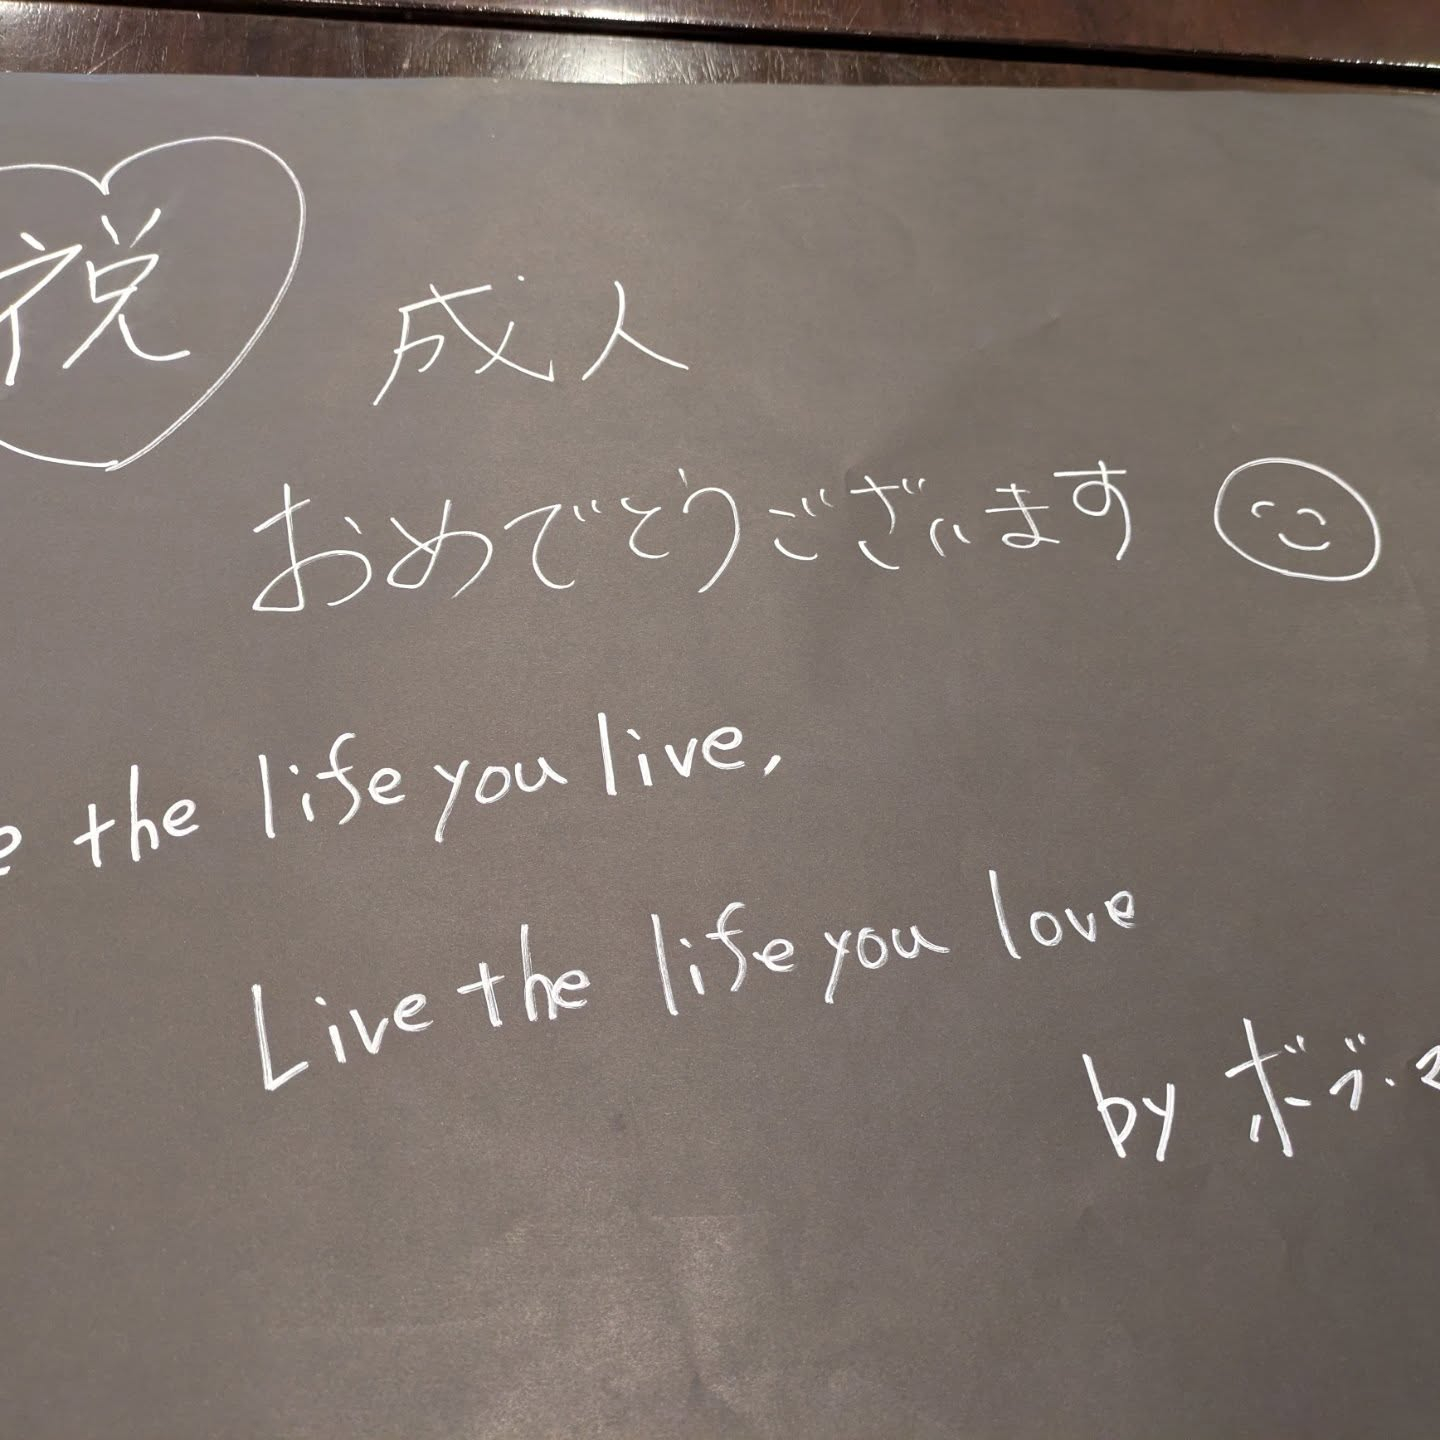 祝
成人
おめでとうございます
e the life you live,
Live the life you love
by ボブ・